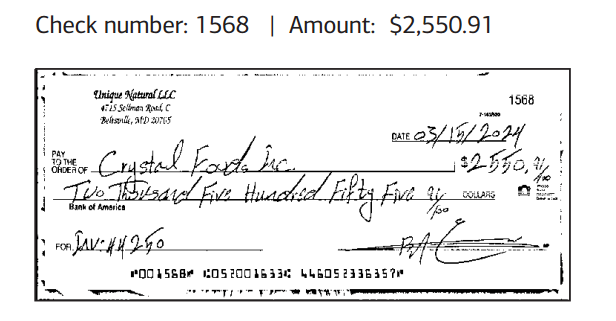 Check number: 1568 | Amount: $2,550.91
Unique Natural LLC
4715 Sellman Road, C
Beltsville, MD 20705
1568
DATE 03/15/2024
PAY TO THE ORDER OF Crystal Foods Inc. $2550.91/100
Two Thousand Five Hundred Fifty Five 91/100 DOLLARS
Bank of America
FOR INV:#4250
⑈001568⑈ ⑆052001633⑆ 446052336357⑈